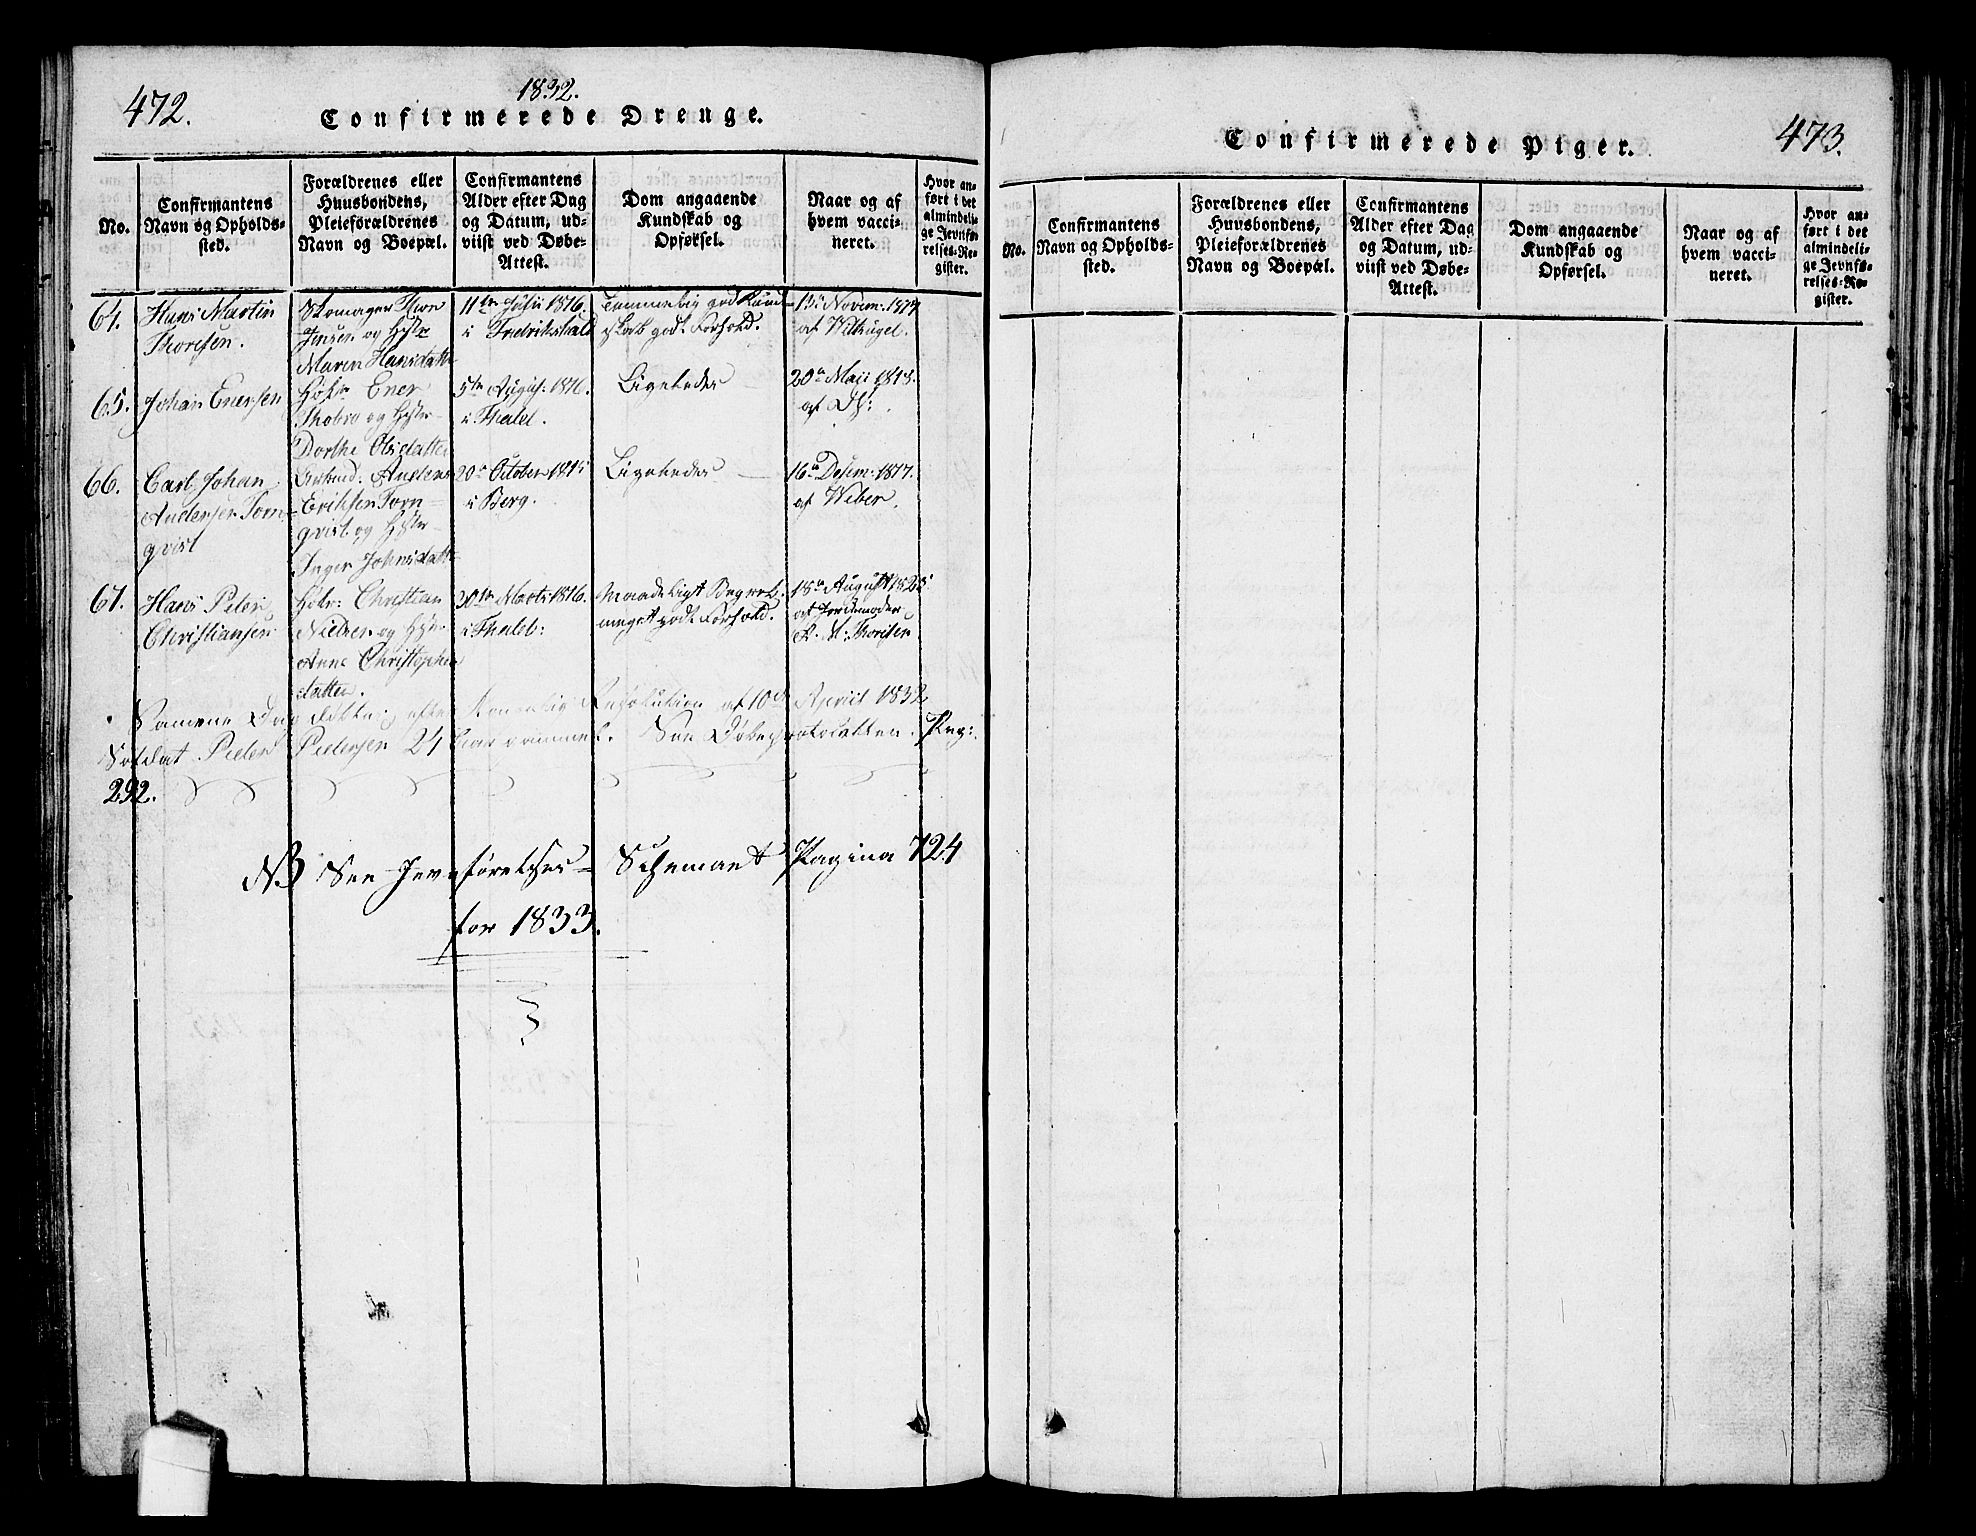 472.
1832.
Confirmerede Drenge.
No.
Confirmantens
Navn og Opholds-
sted.
Forældrenes eller
Huusbondens,
Pleieforældrenes
Navn og Boepæl.
Confirmantens
Alder efter Dag
og Datum, ud-
viist ved Døbe-
Attest.
Dom angaaende
Kundskab og
Opførsel.
Naar og af
hvem vacci-
neret.
Hvor an-
ført i det
almindeli-
ge Jevnfø-
relses-Re-
gister.
64.
Hans Martin
Thoresen.
Skomager Thor
Jensen og Hstr
Maren Hansdatter
11te Julii 1816.
i Fredrikshald
Temmelig god Kund-
skab godt Forhold.
13de Novem: 1817
af
65.
Johan Enersen
Ener
Thobro og Hstr
Dorthe Olsdatter
5te August 1816.
i Fhald.
Ligeledes
20de Maii 1818.
af Ds:
66.
Carl Johan
Andersen Torn-
qvist
Anders
Eriksen Torn-
qvist og Hstr
Inger Johnsdatter
20de October 1815
i Berg.
Ligeledes
16de Desem: 1817.
af Weber.
67.
Hans Peter
Christiansen
Christian
Nielsen og Hstr
Anne Christopher
datter.
30te Marts 1816.
i Fhald:
Maadeligt Begreb.
meget godt Forhold.
18de August 1828
af Jordemoder
M: Thoresen
Samme Dag efter Kongelig Resolution af 10de April 1832
Soldat Peder Pedersen 24 Aar gammel. See Døbeprotocollen. Pag:
292.
NB See Jevnførelses- Schemaet Pagina 724
for 1833.
473.
Confirmerede Piger.
No.
Confirmantens
Navn og Opholds-
sted.
Forældrenes eller
Huusbondens,
Pleieforældrenes
Navn og Boepæl.
Confirmantens
Alder efter Dag
og Datum, ud-
viist ved Døbe-
Attest.
Dom angaaende
Kundskab og
Opførsel.
Naar og af
hvem vacci-
neret.
Hvor an-
ført i det
almindeli-
ge Jevnfø-
relses-Re-
gister.